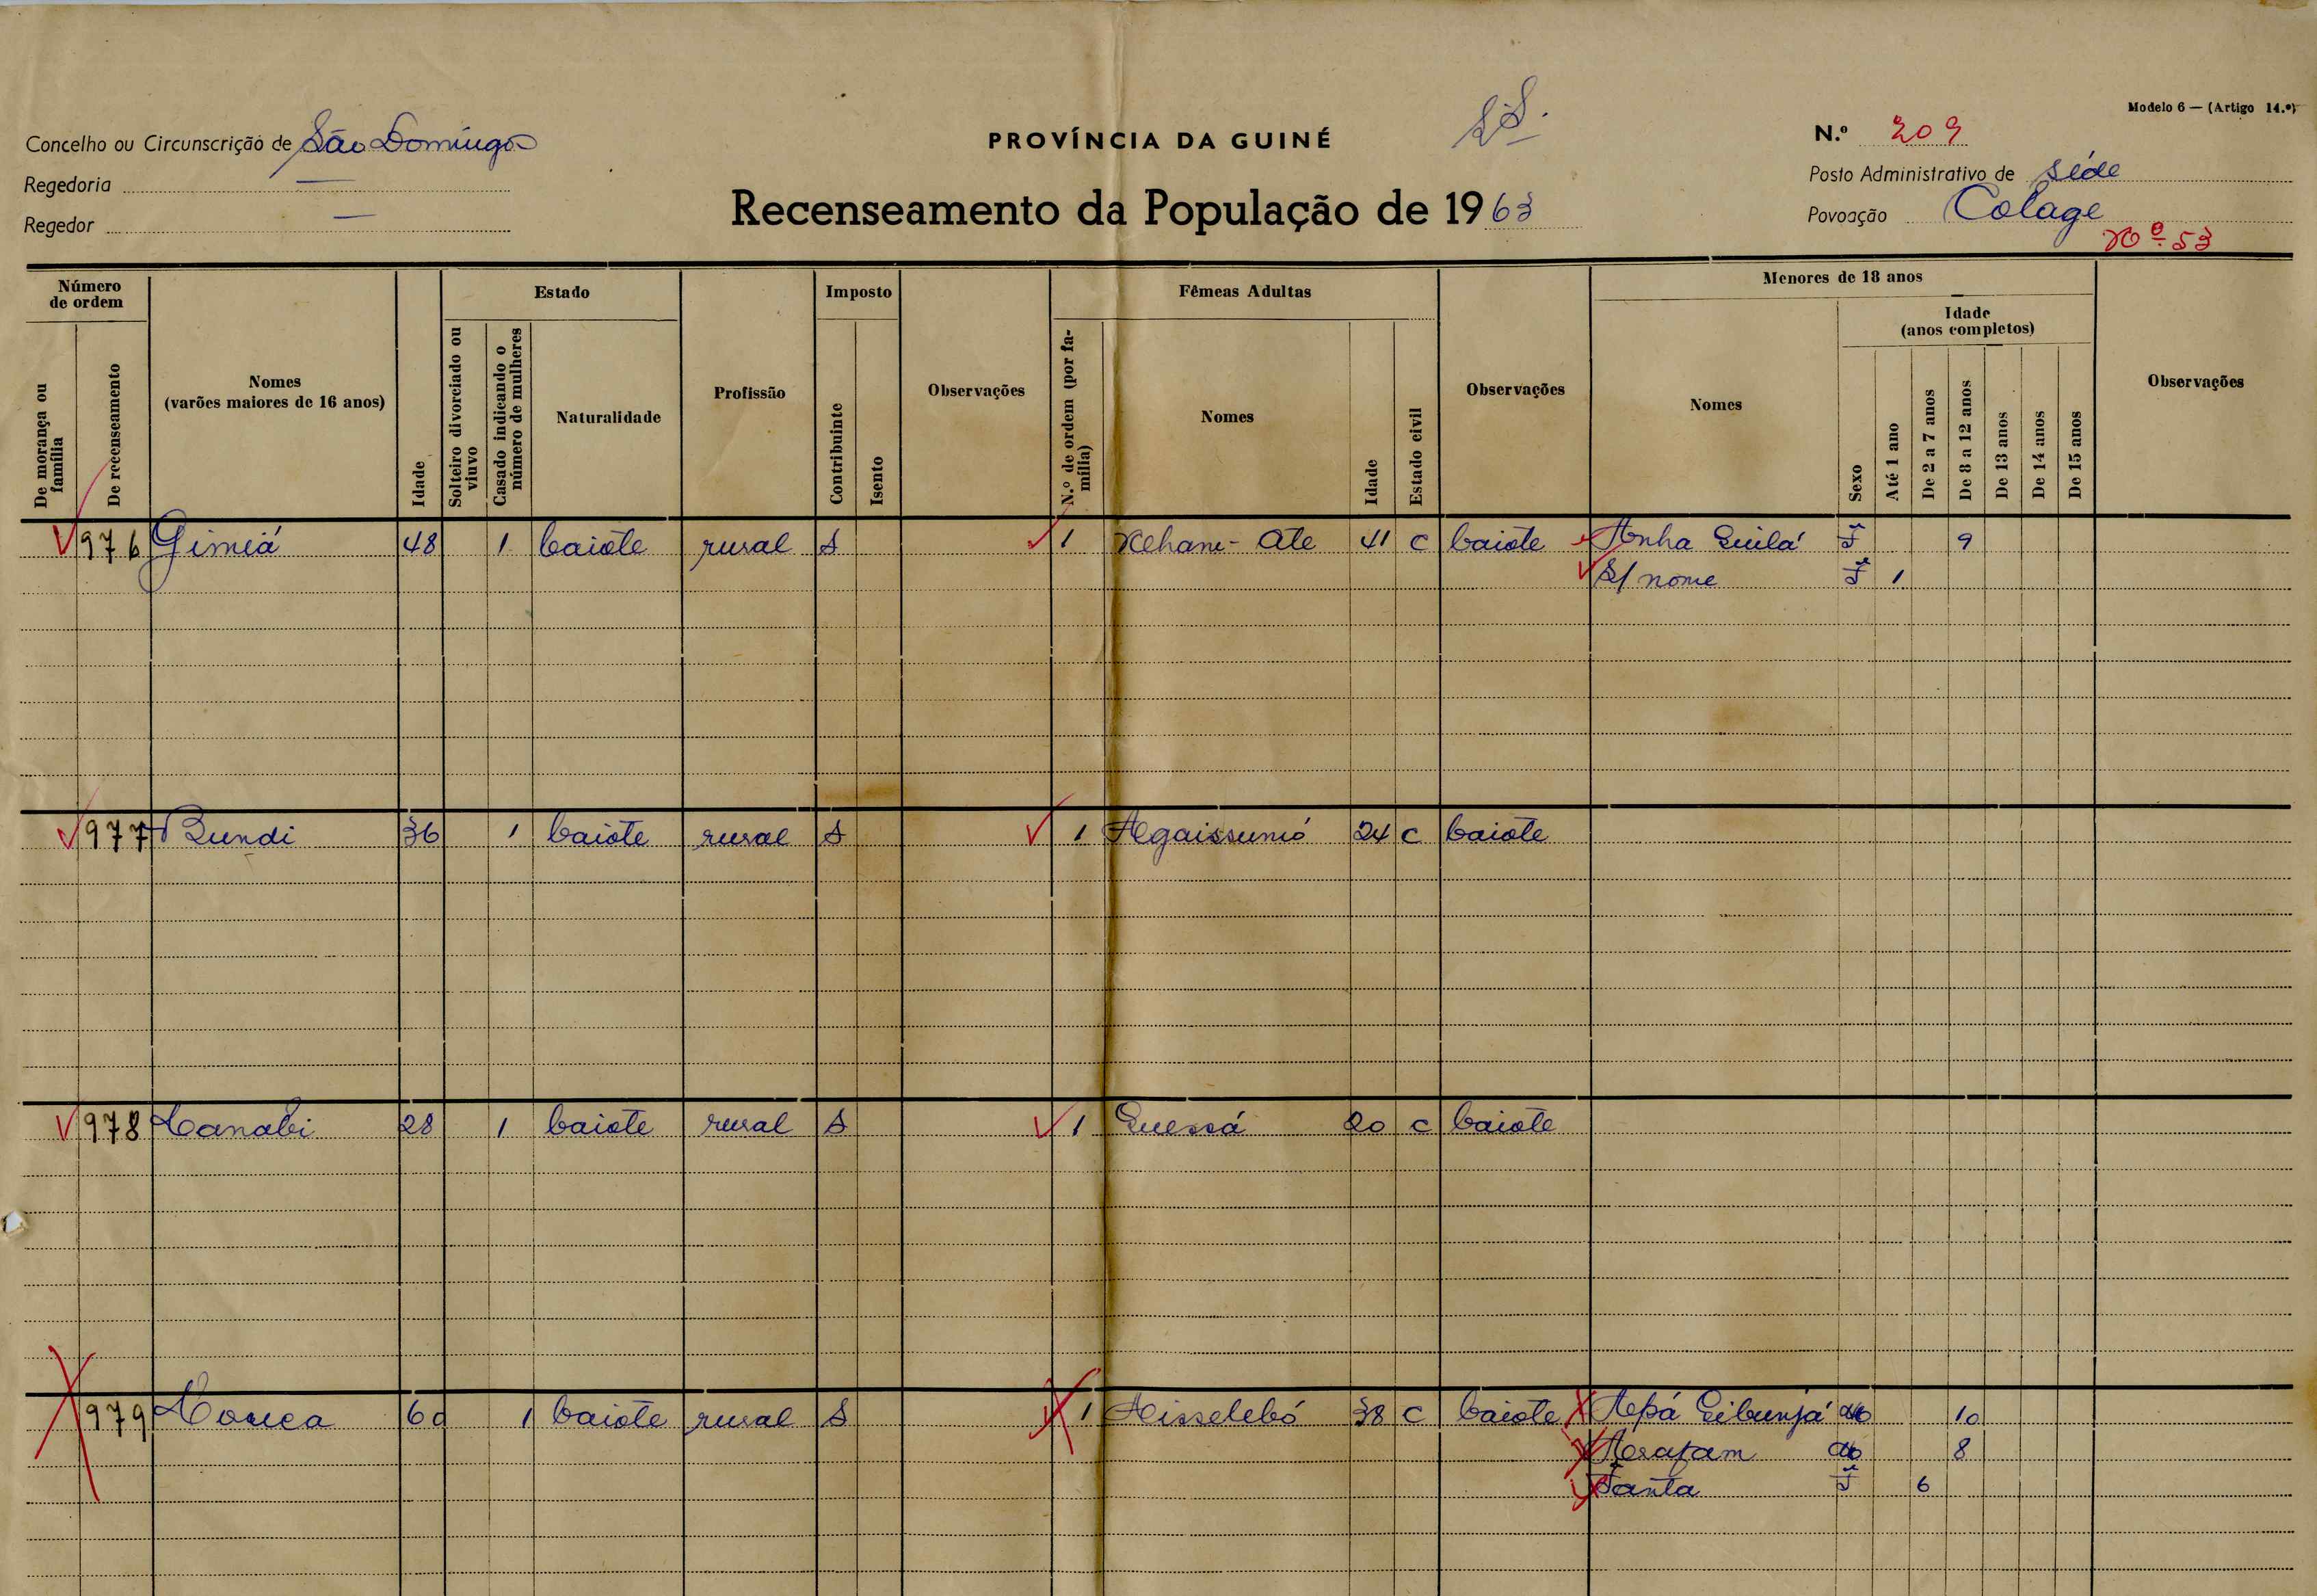 Modelo 6 — (Artigo 14.º)
Concelho ou Circunscrição de São Domingos
PROVÍNCIA DA GUINÉ
N.º 209
Regedoria —
Posto Administrativo de Séde
Regedor —
Recenseamento da População de 1963
Povoação Colage
Nº 53
Número de ordem
De morança ou família
De recenseamento
Nomes (varões maiores de 16 anos)
Idade
Estado
Solteiro divorciado ou viuvo
Casado indicando o número de mulheres
Naturalidade
Profissão
Imposto
Contribuinte
Isento
Observações
Fêmeas Adultas
N.º de ordem (por família)
Nomes
Idade
Estado civil
Observações
Menores de 18 anos
Nomes
Sexo
Idade (anos completos)
Até 1 ano
De 2 a 7 anos
De 8 a 12 anos
De 13 anos
De 14 anos
De 15 anos
Observações
976 Gimiá 48 1 baiote rural S 1 41 C baiote F 9
S/ nome F 1
977 Bundi 36 1 baiote rural S 1 Agaissumó 24 C baiote
978 28 1 baiote rural S 1 20 C baiote
979 60 1 baiote rural S 1 38 C baiote 10
8
Fanta F 6